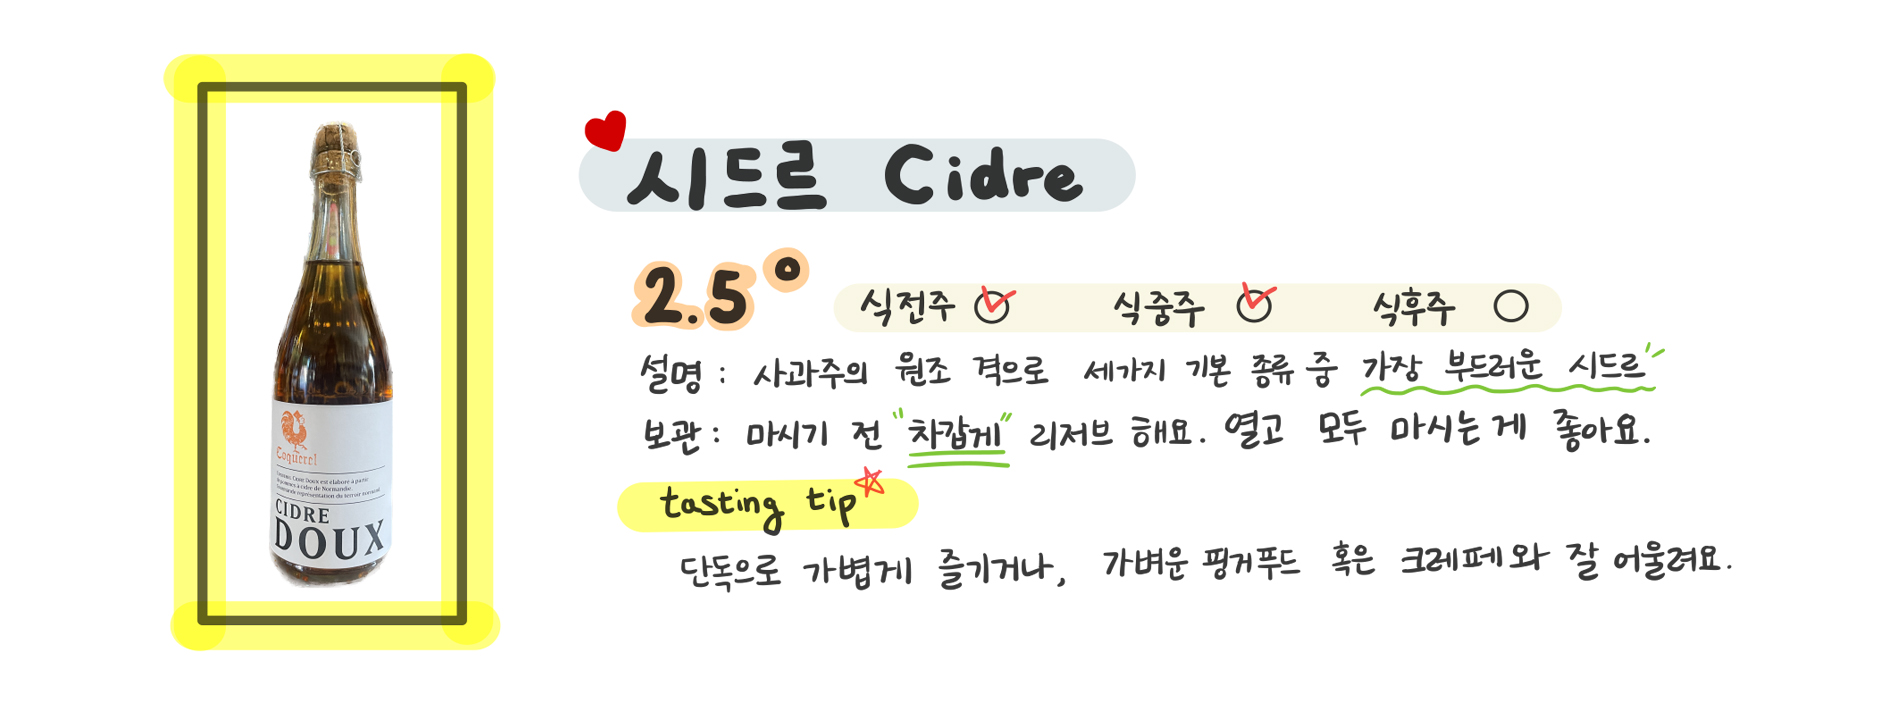 시드르 Cidre
2.5°
식전주 식중주 식후주
설명 : 사과주의 원조 격으로 세가지 기본 종류 중 가장 부드러운 시드르"
보관 : 마시기 전 "차갑게" 리저브 해요. 열고 모두 마시는게 좋아요.
tasting tip
단독으로 가볍게 즐기거나, 가벼운 핑거푸드 혹은 크레페와 잘 어울려요.
Coquerel
Cidre Doux est élaboré à partir
de pommes à cidre de Normandie.
représentation du terroir normand
CIDRE
DOUX